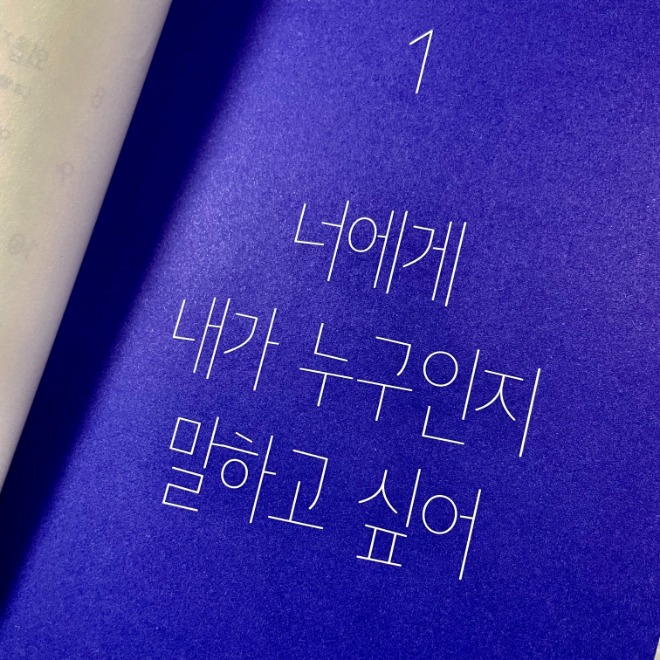 1
너에게
내가 누구인지
말하고 싶어